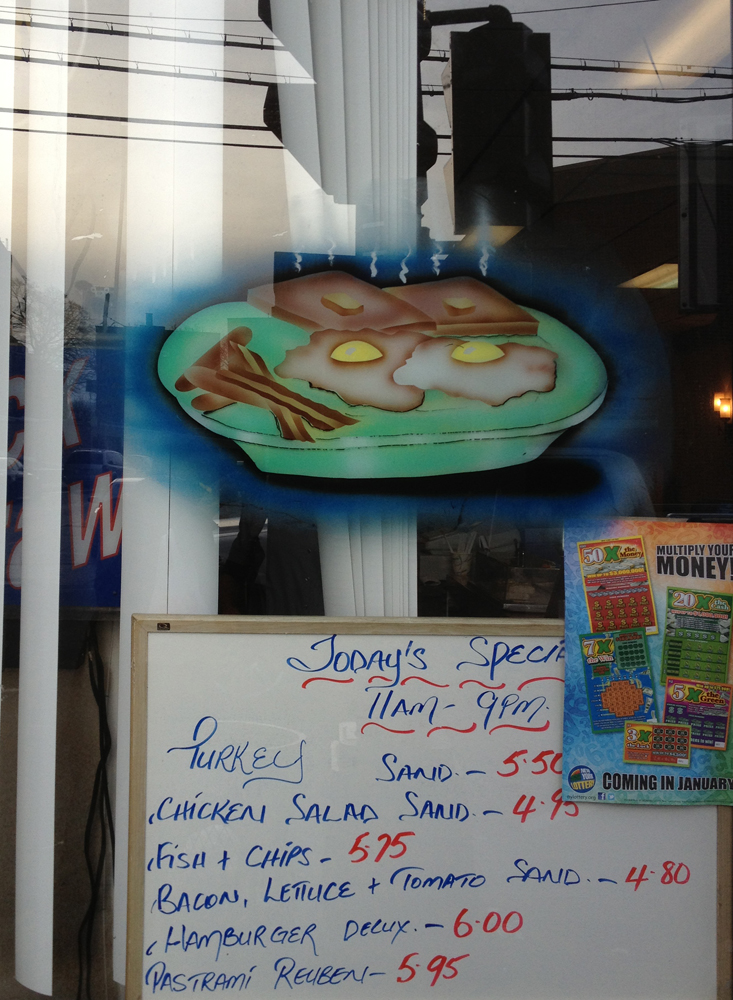 MULTIPLY YOUR
MONEY!
50X the Money
20X the Cash
7X the Win
5X the Green
3X
NEW YORK LOTTERY
COMING IN JANUARY
TODAY'S SPECIA
11AM - 9PM.
TURKEY SAND. - 5.50
CHICKEN SALAD SAND. - 4.95
FISH + CHIPS - 5.75
BACON, LETTUCE + TOMATO SAND. - 4.80
HAMBURGER DELUX. - 6.00
PASTRAMI REUBEN - 5.95